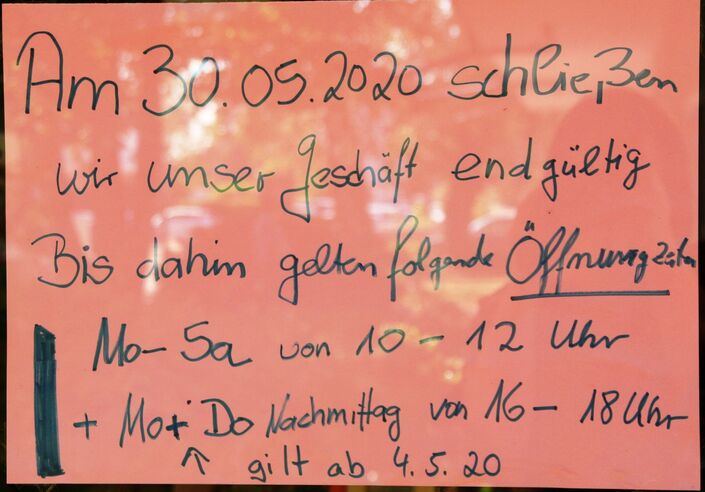 Am 30.05.2020 schließen
wir unser Geschäft endgültig
Bis dahin gelten folgende Öffnungzeiten
Mo - Sa von 10 - 12 Uhr
+ Mo + Do Nachmittag von 16 - 18 Uhr
↑ gilt ab 4.5.20